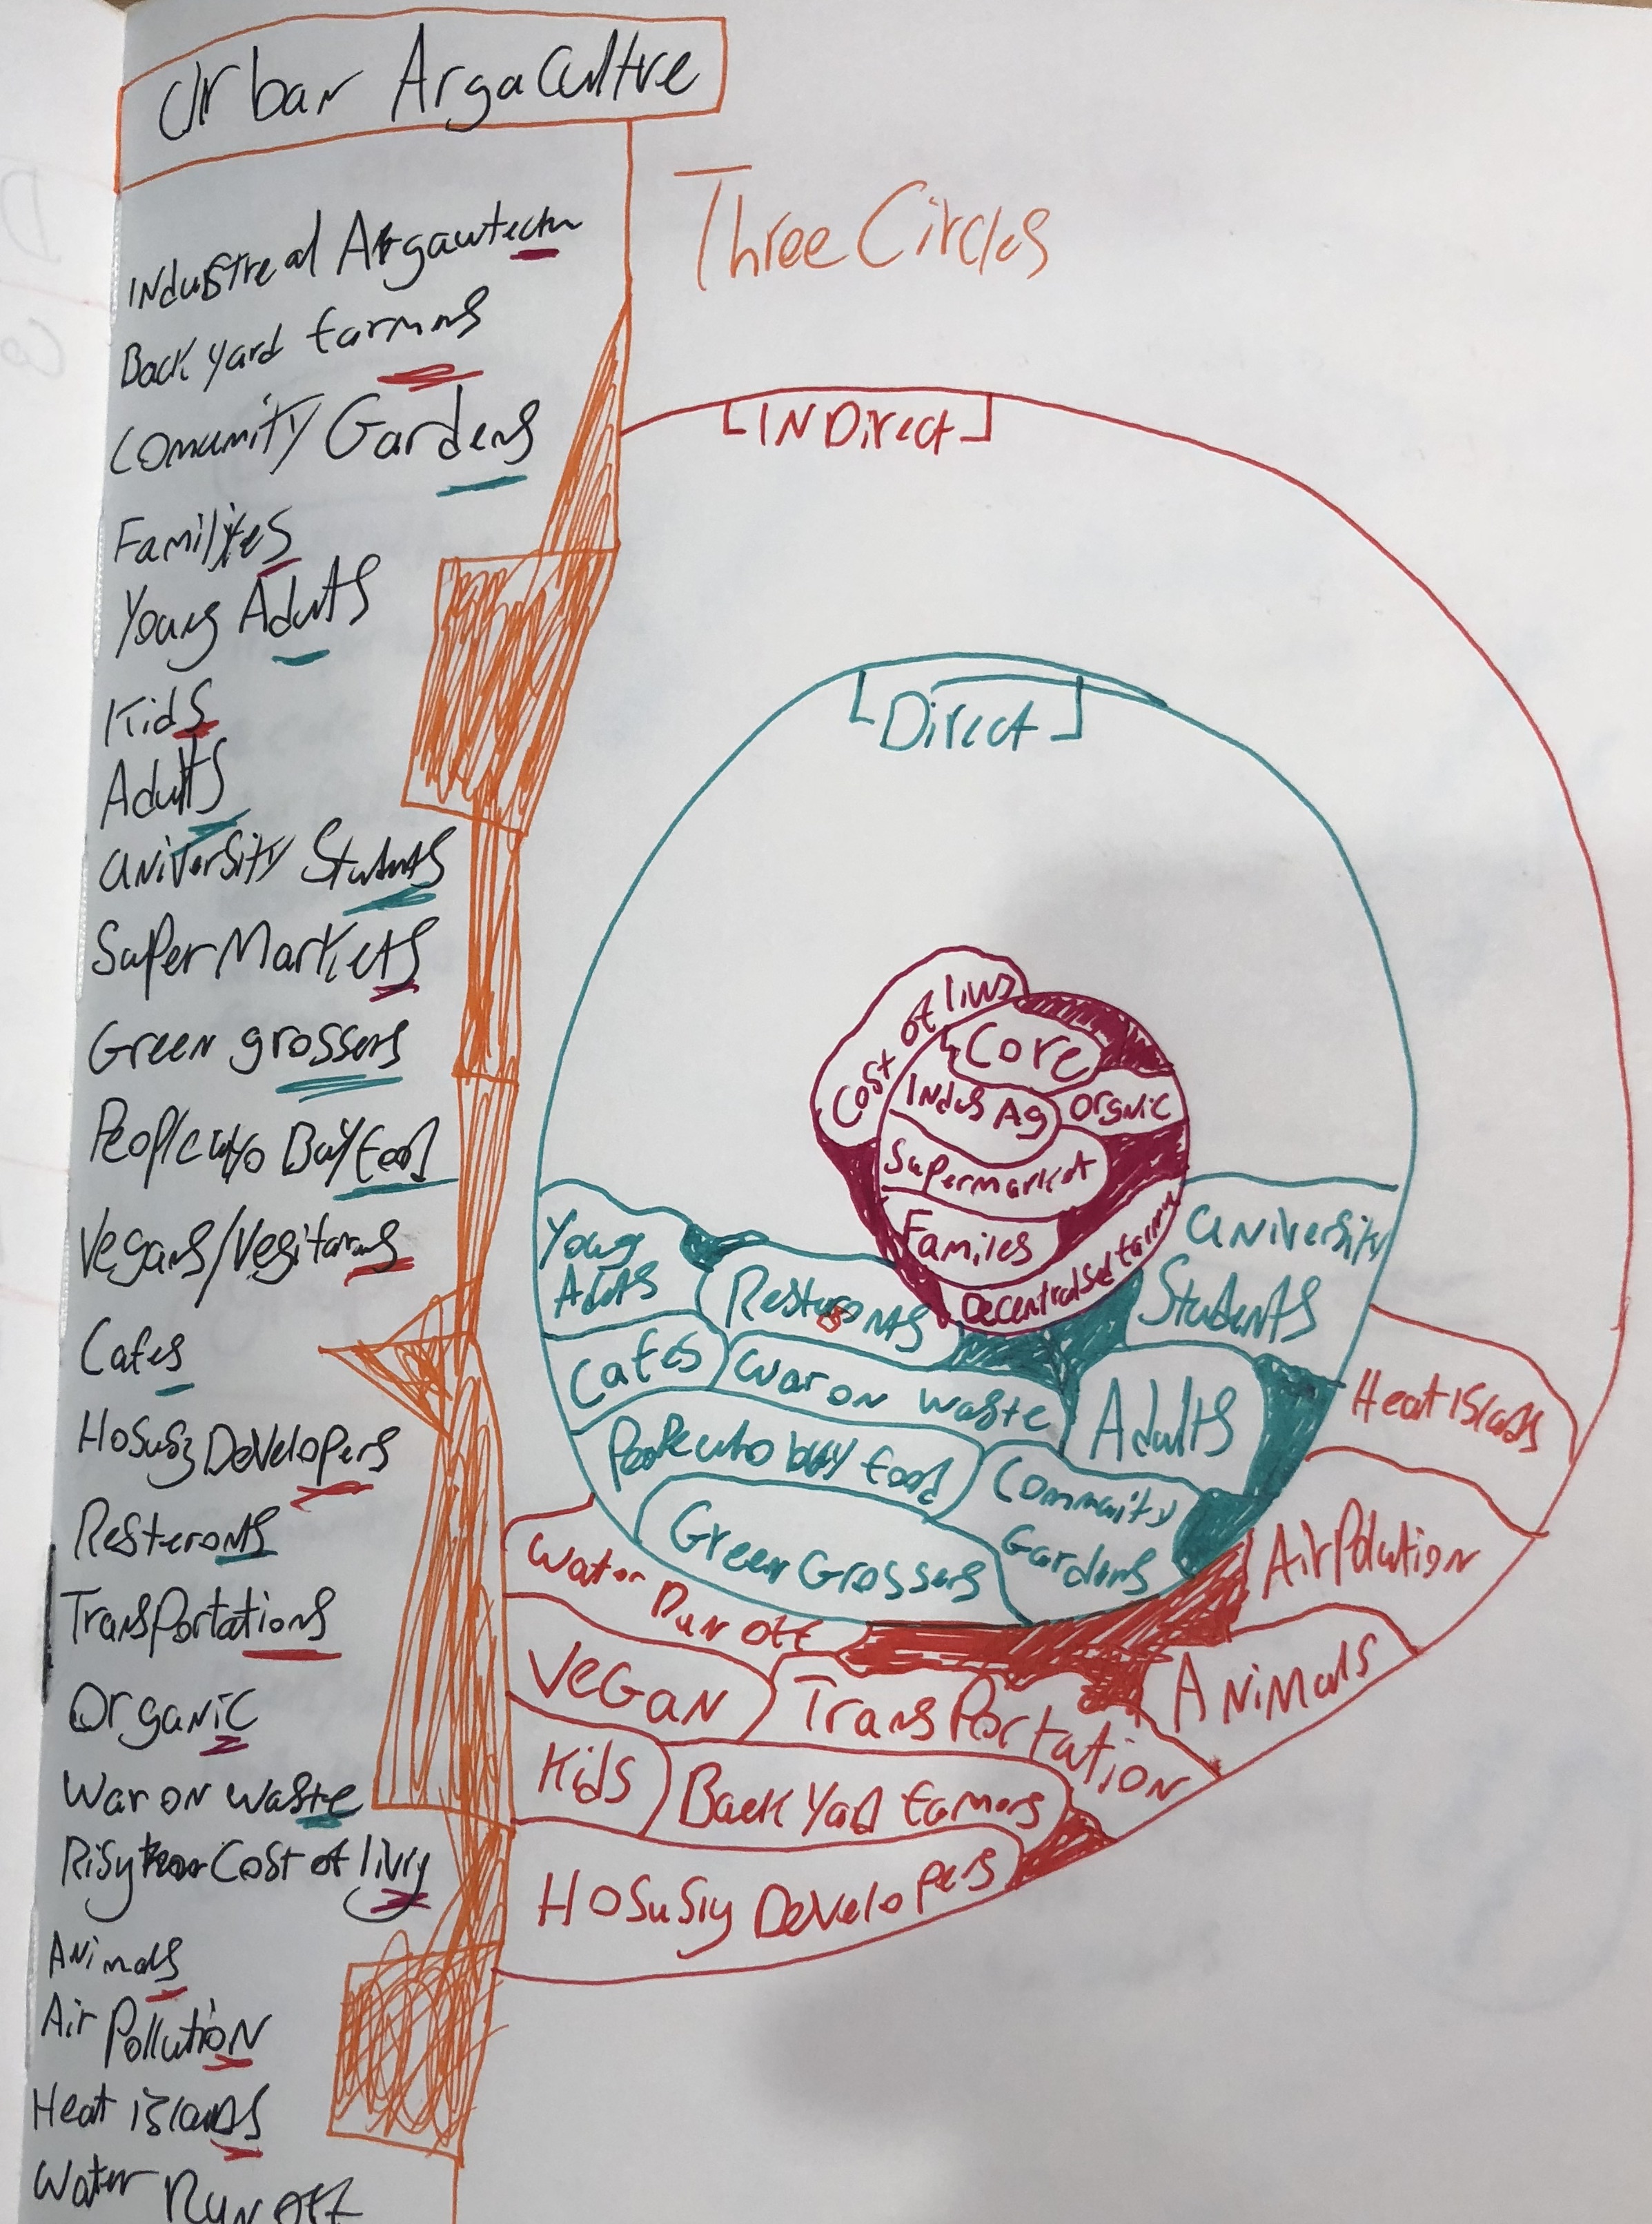 Urban Argaculture
Three Circles
Industreal
Back yard farming
Comunity Gardens
Families
Young Adults
Kids
Adults
University Students
Super Markets
Green grossers
People who Buy food
Vegans/Vegitarans
Cafes
Hosusig Developers
Resteronts
Transportations
Organic
War on waste
Cost of livig
Animals
Air Pollution
Heat islands
Water Run off
[INDirect]
[Direct]
Cost of living
Core
Indus Ag
Orgnic
Supermarket
Familes
Decentralised farming
University
Students
Young
Adults
Resteronts
Cafes
War on waste
Adults
People who buy food
Community
Gardens
Green Grossers
Heat islands
Air Polution
Water
Run off
Vegan
Transportation
Animals
Kids
Back Yard farmers
Hosusig Developers